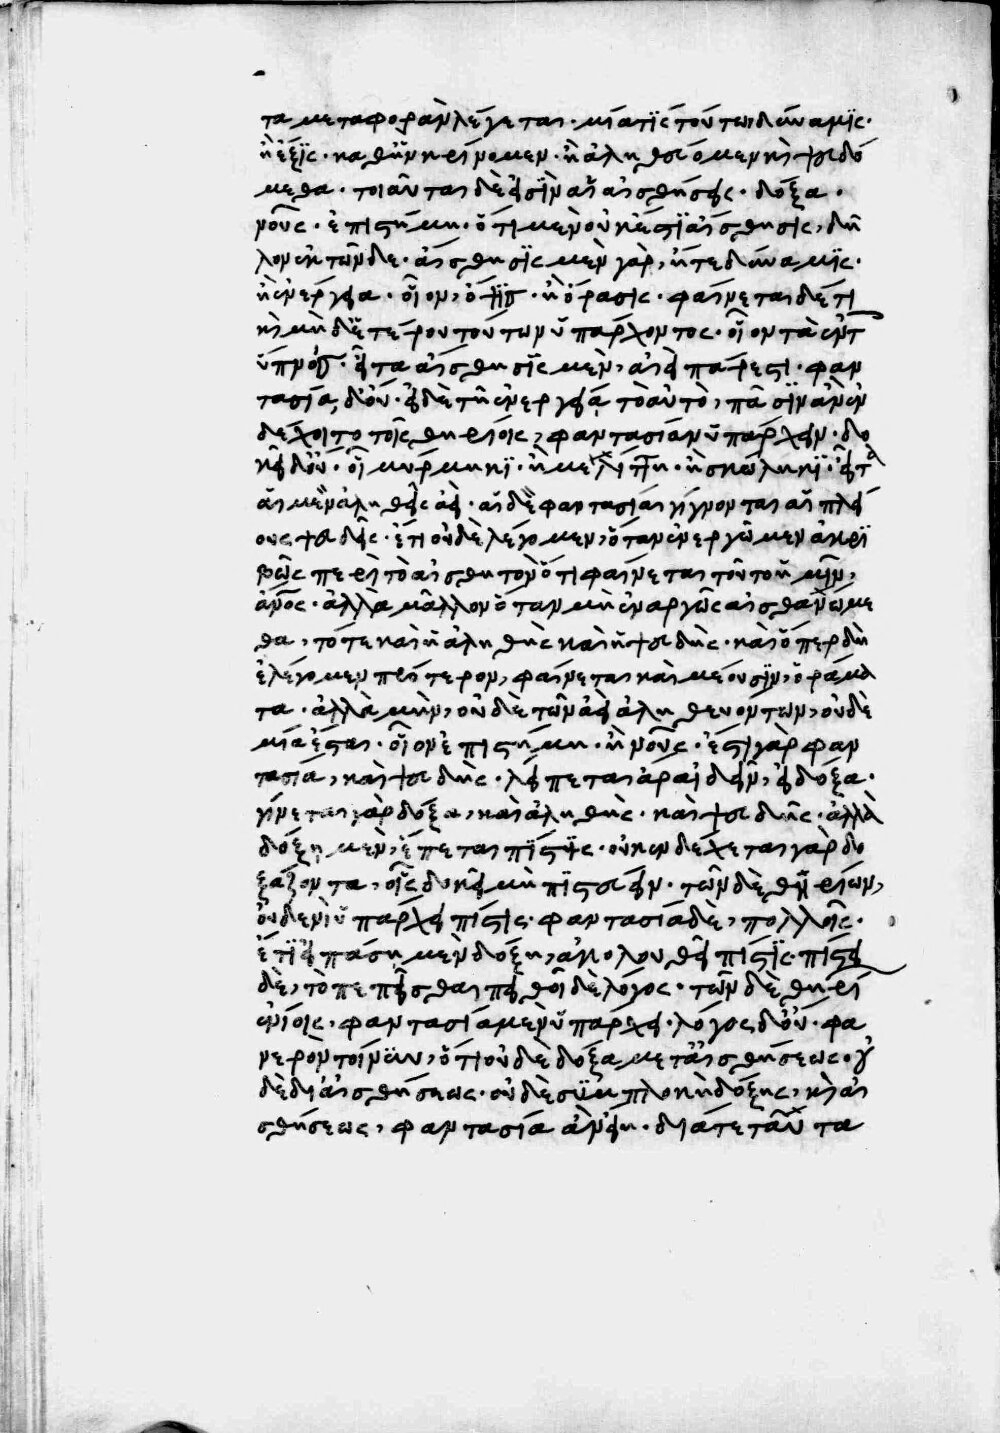 τα μεταφορὰν λέγεται · μία τίς τούτων δύναμϊς ·
ἢ ἕξϊς · καθ' ἣν κρίνομεν · ἢ ἀληθεύομεν κὶ ψευδό
μεθα · τοιαῦται δὲ εἰσὶν αἴσθησεις · δόξα ·
νοῦς · ἐπιστήμη · ὅτι μὲν οὐκ ἐστὶ αἴσθησις, δῆ
λον ἐκ τῶνδε · αἴσθησϊς μὲν γὰρ, ἤτε δύναμϊς ·
ἢ ἐνέργεια · οἷον, ὄψϊς · ἢ ὅρασις · φαίνεται δέ τι
κὶ μηδϊ τέρου τούτων ὑπάρχοντος · οἷον τὰ ἐν τ
ὕπνοις · εἶτα αἴσθησϊς μὲν, ἀεὶ πάρεστι · φαν
τασία, δ' οὔ · εἰ δὲ τῇ ἐνεργείᾳ τὸ αὐτὸ, πᾶσϊν ἂν ἐν
δέχοιτο τοῖς θηρίοις, φαντασίαν ὑπάρχειν · δο
κεῖ δ' οὔ · οἷ μύρμηκϊ · ἢ μελίττῃ · ἢ σκώληκϊ · εἶτα
αἱ μὲν ἀληθεῖς ἀεὶ · αἱ δὲ φαντασίαι γίγνονται αἱ πλεί
ους ψευδεῖς · ἔτι οὐδὲ λέγομεν, ὅταν ἐνεργῶμεν ἀκρϊ
βῶς περὶ τὸ αἰσθητὸν ὅτι φαίνεται τοῦτο ἡμῖν,
ἄνος · ἀλλὰ μᾶλλον ὅταν μὴ ἐναργῶς αἰσθανώμε
θα, τότε καὶ ἢ ἀληθὴς καὶ ἢ ψευδὴς · καὶ ὅπερ δὴ
ἐλέγομεν πρότερον, φαίνεται καὶ μύουσϊν, ὁράμα
τα · ἀλλὰ μὴν, οὐδὲ τῶν ἀεὶ ἀληθευόντων, οὐδὲ
μία ἔσται · οἷον ἐπιστήμη · ἢ νοῦς · ἔστι γὰρ φαν
τασία, καὶ ψευδὴς · λείπεται ἄρα ἰδεῖν, εἰ δόξα ·
γίνεται γὰρ δόξα, καὶ ἀληθὴς · καὶ ψευδὴς · ἀλλὰ
δόξῃ μὲν, ἕπεται πίστϊς · οὐκ ἐνδέχεται γὰρ δο
ξάζοντα, οἷς δοκεῖ μὴ πϊστεύειν · τῶν δὲ θηρίων,
οὐδενὶ ὑπάρχει πίστις · φαντασία δὲ, πολλοῖς ·
ἔτϊ εἰ πάσῃ μὲν δόξῃ, ἀκολουθεῖ πίστϊς · πίστει
δὲ, τὸ πεπεῖσθαι πειθοῖ δὲ λόγος · τῶν δὲ θηρί
ων ἐνίοις · φαντασία μὲν ὑπάρχει · λόγος δ' οὔ · φα
νερὸν τοίνυν, ὅτι οὐδὲ δόξα μετ' αἰσθήσεως · οὐ
δὲ δι' αἰσθήσεως · οὐδὲ συμπλοκὴ δόξης, κὶ αἰ
σθήσεως, φαντασία ἂν εἴη · διά τε ταῦτα